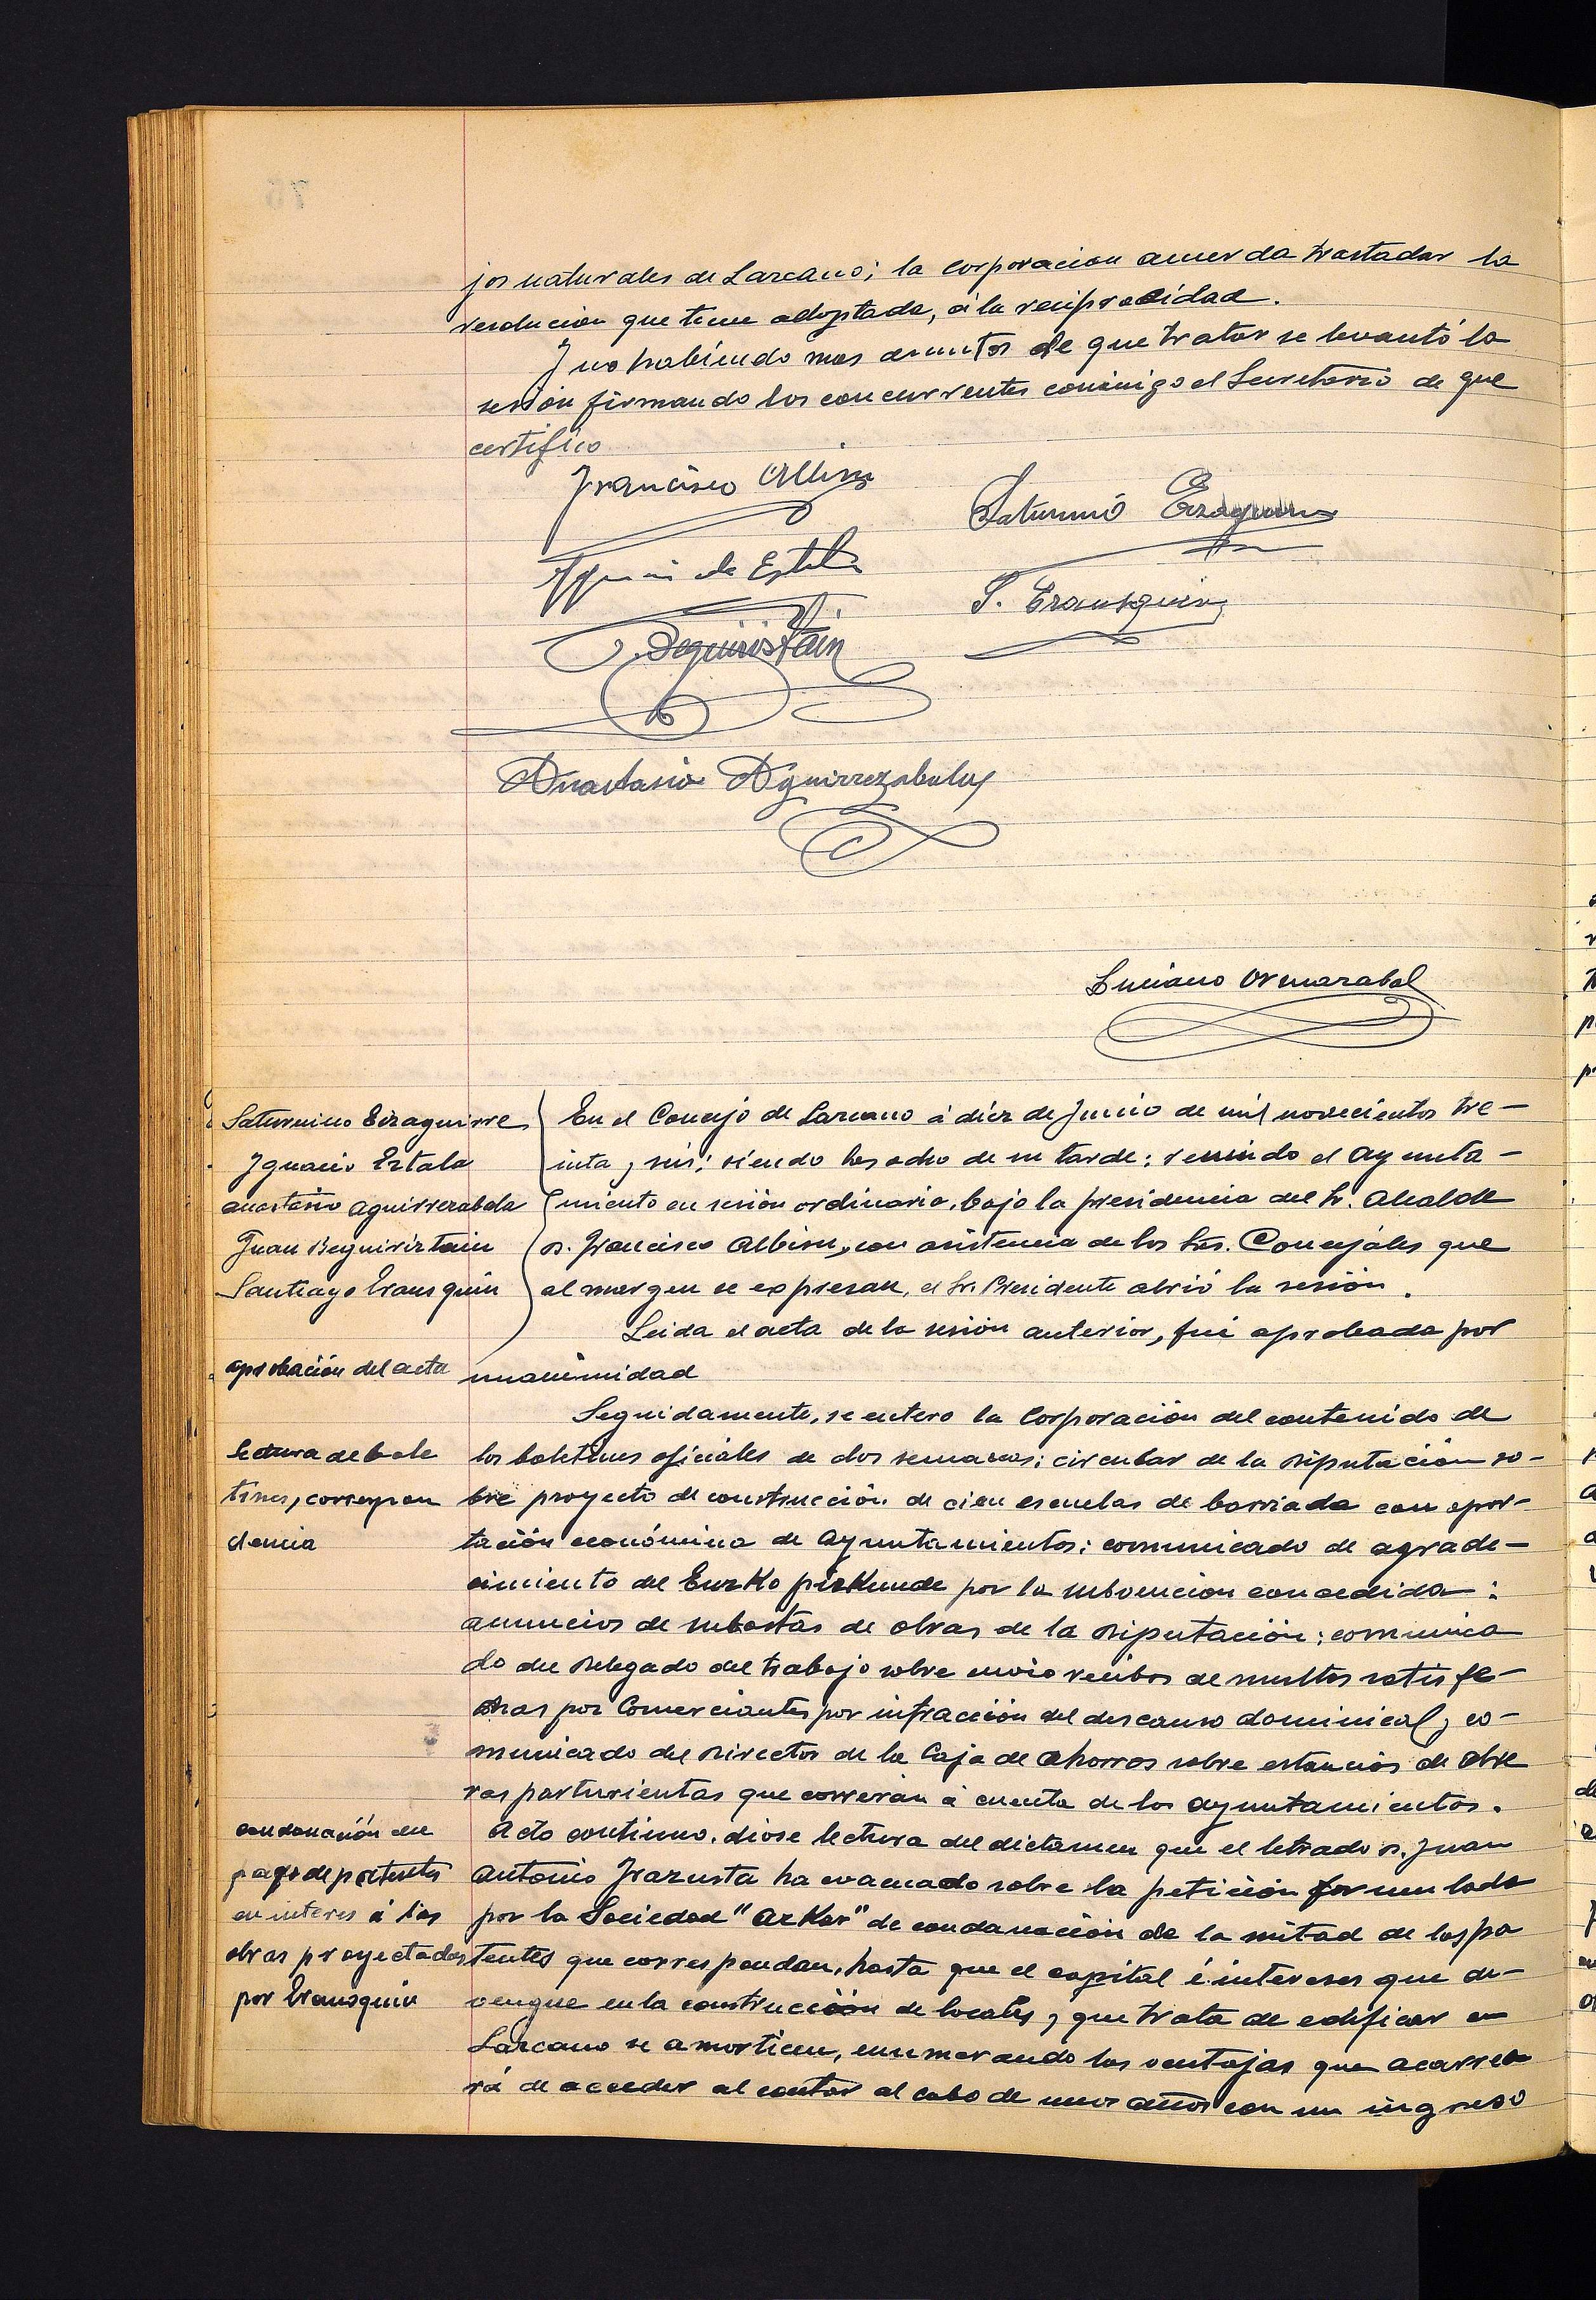 jos naturales de Lazcano; la corporacion acuerda trastadar la
resolucion que tiene adoptada, á la reciprocidad.
Y no habiendo mas asuntos de que tratar se levantó la
sesión firmando los concurrentes conmigo el Secretario de que
certifico
Francisco Albisu
Saturnino Eizaguirre
Ygnacio de Estala
S. Erausquin
J. Beguiristain
Anastasio Aguirrezabala
Luciano Ormazabal
Saturnino Eizaguirre
Ygnacio Estala
anastasio aguirrezabala
Juan Beguiriztain
Santiago Erausquin
En el Concejo de Lazcano á diez de Junio de mil novecientos tre-
inta y seis; siendo las ocho de su tarde; reunido el Ayunta-
miento en sesión ordinaria, bajo la presidencia del Sr. Alcalde
D. Francisco Albisu, con asistencia de los Srs. Concejáles que
al margen se expresan, el Sr. Presidente abrió la sesión.
Leida el acta de la sesión anterior, fué aprobada por
aprobación del acta
unanimidad
Seguidamente, se entero la Corporación del contenido de
lectura de bole
tines, correspon
dencia
los boletines oficiáles de dos semanas; circular de la Diputación so-
bre proyecto de construcción de cien escuelas de barriada con apor-
tación económica de Ayuntamientos; comunicado de agrade-
cimiento del Euzko pizkunde por la subvencion concedida;
anuncios de subastas de obras de la Diputación; comunica
do del Delegado del trabajo sobre envio recibos de multas satisfe-
chas por Comerciantes por infracción del descanso dominical y co-
municado del Director de la Caja de Ahorros sobre estancias de obre
ras parturientas que correrán á cuenta de los ayuntamientos.
condonación del
pago de patentes
en interes á las
obras proyectadas
por Erausquin
Acto continuo, dióse lectura del dictamen que el letrado D. Juan
Antonio Irazusta ha evacuado sobre la petición formulada
por la Sociedad "Azkar" de condonación de la mitad de las pa
tentes que correspondan, hasta que el capital é intereses que de-
vengue en la construcción de locales y que trata de edificar en
Lazcano se amorticen, enumerando las ventajas que acarrea
rá de acceder al contar al cabo de unos años con un ingreso